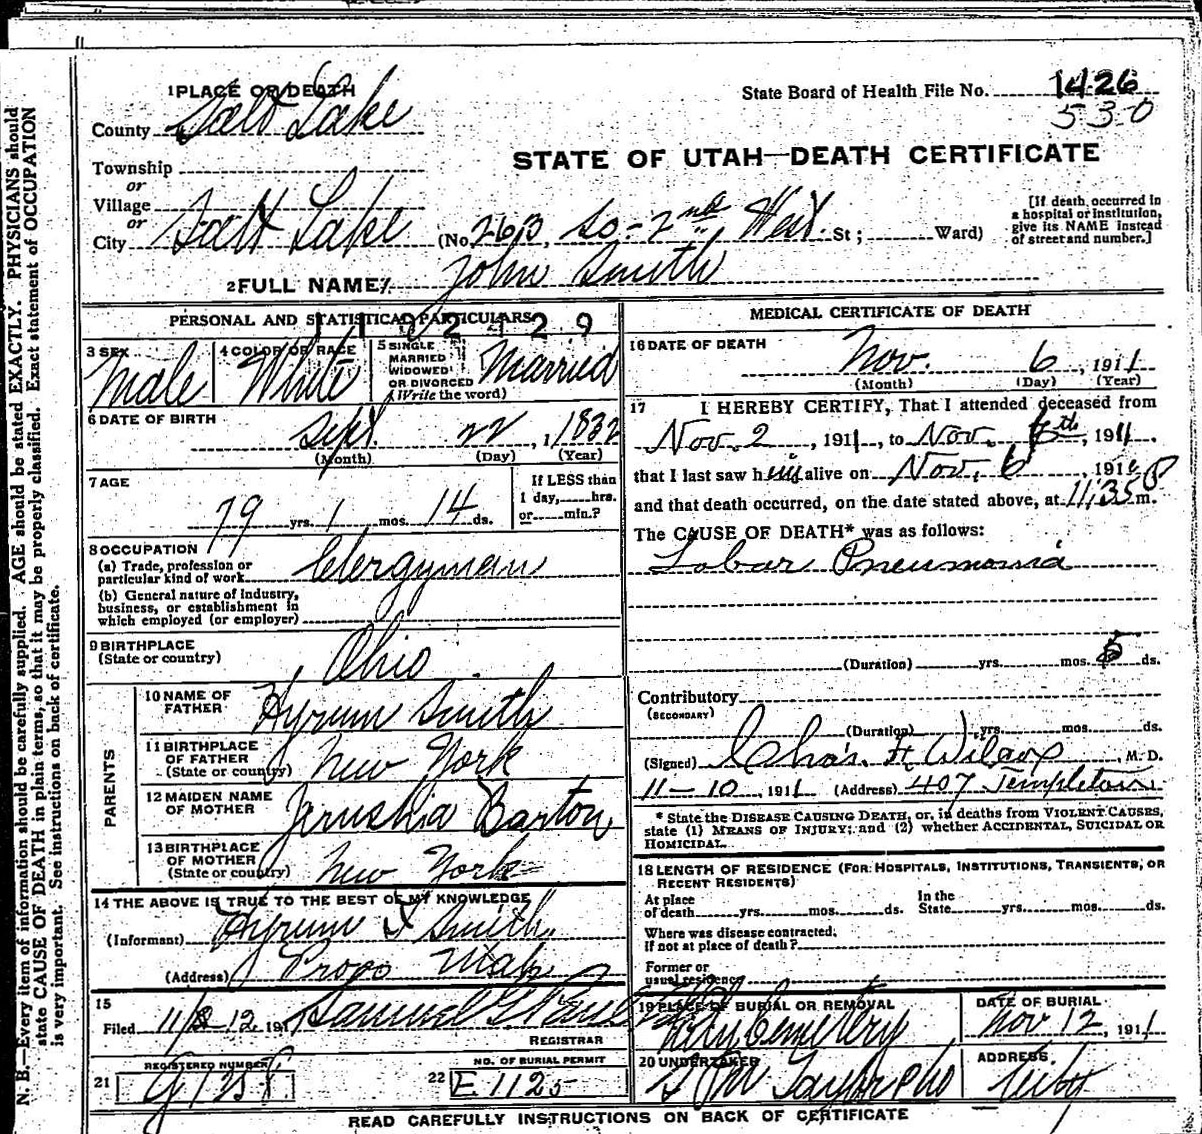 1 PLACE OF DEATH
County Salt Lake
Township
or
Village
or
City Salt Lake (No. 263 So - 2nd West St; Ward)
[If death occurred in a hospital or institution, give its NAME instead of street and number.]
State Board of Health File No. 1426
530
STATE OF UTAH—DEATH CERTIFICATE
2 FULL NAME John Smith
PERSONAL AND STATISTICAL PARTICULARS
3 SEX Male
4 COLOR OR RACE White
5 SINGLE
MARRIED
WIDOWED
OR DIVORCED
(Write the word) Married
6 DATE OF BIRTH
Sept 22, 1832
(Month) (Day) (Year)
7 AGE
79 yrs. 1 mos. 14 ds.
If LESS than
1 day, hrs.
or min.?
8 OCCUPATION
(a) Trade, profession or
particular kind of work Clergyman
(b) General nature of industry,
business, or establishment in
which employed (or employer)
9 BIRTHPLACE
(State or country) Ohio
PARENTS
10 NAME OF
FATHER Hyrum Smith
11 BIRTHPLACE
OF FATHER
(State or country) New York
12 MAIDEN NAME
OF MOTHER Jerushia Barton
13 BIRTHPLACE
OF MOTHER
(State or country) New York
14 THE ABOVE IS TRUE TO THE BEST OF MY KNOWLEDGE
(Informant) Hyrum F Smith
(Address) Provo Utah
15
Filed 11/ 12, 191 Samuel G
REGISTRAR
REGISTERED NUMBER
21
NO. OF BURIAL PERMIT
22 E 1125
MEDICAL CERTIFICATE OF DEATH
16 DATE OF DEATH
Nov. 6, 1911
(Month) (Day) (Year)
17 I HEREBY CERTIFY, That I attended deceased from
Nov. 2, 1911, to Nov. 6th, 1911.
that I last saw him alive on Nov. 6, 191
and that death occurred, on the date stated above, at 11:35 P m.
The CAUSE OF DEATH* was as follows:
Lobar Pneumonia
(Duration) yrs. mos. 5 ds.
Contributory
(SECONDARY)
(Duration) yrs. mos. ds.
(Signed) Chas. F. Wilcox, M. D.
11-10, 1911 (Address) 407 Templeton
* State the DISEASE CAUSING DEATH, or, in deaths from VIOLENT CAUSES,
state (1) MEANS OF INJURY; and (2) whether ACCIDENTAL, SUICIDAL OR
HOMICIDAL.
18 LENGTH OF RESIDENCE (FOR HOSPITALS, INSTITUTIONS, TRANSIENTS, OR
RECENT RESIDENTS)
At place
of death yrs. mos. ds.
In the
State yrs. mos. ds.
Where was disease contracted,
if not at place of death?
Former or
usual residence
19 PLACE OF BURIAL OR REMOVAL
City Cemetery
DATE OF BURIAL
Nov 12, 1911
20 UNDERTAKER
Taylor
ADDRESS
City
READ CAREFULLY INSTRUCTIONS ON BACK OF CERTIFICATE
N. B.—Every item of information should be carefully supplied. AGE should be stated EXACTLY. PHYSICIANS should
state CAUSE OF DEATH in plain terms, so that it may be properly classified. Exact statement of OCCUPATION
is very important. See instructions on back of certificate.